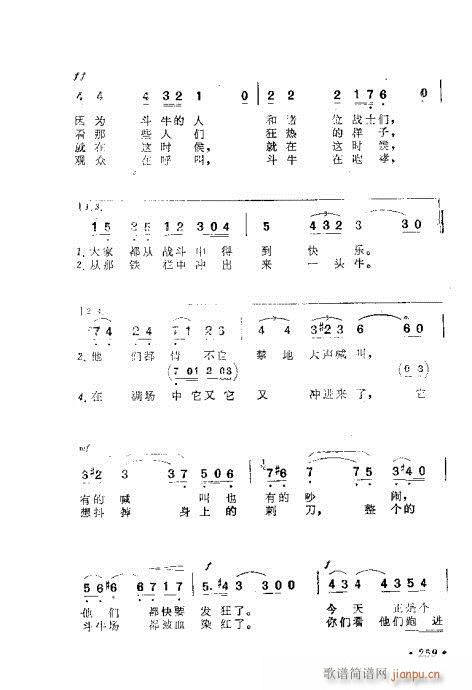 ff
4 4 4 3 2 1 0 2 2 2 1 7 6 0
因为 斗牛的人 和诸 位战士们，
看那 些人们 狂热 的样子，
就在 这时侯， 就在 这时侯，
观众 在呼叫， 斗牛 在咆哮，
1.3.
1 5 2 5 1 2 1 2 3 0 4 5 4 3 2 3 3 0
1.大家 都从 战斗 中 得 到 快 乐。
2.从那 铁 栏中 冲 出 来 一 头 牛。
2.4.
7 4 2 2 7 5 2 6 4 4 3 #2 3 6 6 0
2.他 们都 情 不自 禁地 大声喊叫，
(7 01 2 03) (0 3)
4.在 满场 中它又 它 又 冲进来了， 它
mf
3 #2 3 3 7 5 0 6 7 #6 7 7 5 3 #4 0
有的 喊 叫也 有的 吵 闹，
想抖 掉 身上的 刺 刀， 整个的
f f
5 6 #5 6 6 7 1 7 5. #4 3 0 0 4 3 4 4 3 5 4
他 们 都快要 发 狂了。 今天 正是个
斗牛场 都被血 染红了。 你们看 他们跑进
• 259 •
歌谱简谱网 jianpu.cn